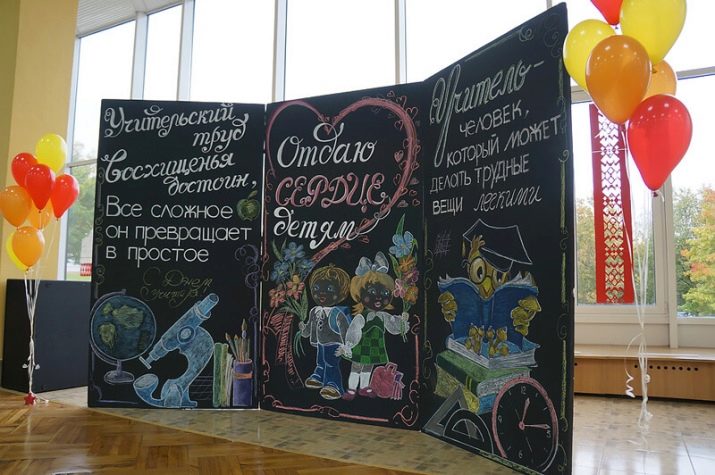 Учительский
труд
Восхищенья
достоин,
Все сложное
он превращает
в простое
С Днем
учителя!
Отдаю
СЕРДЦЕ
детям
Учитель-
человек,
который может
делать трудные
вещи легкими